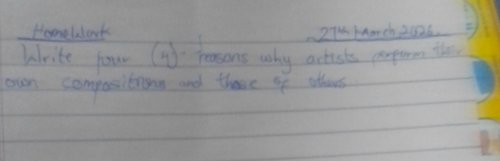 HomeWork 27th March 2026.
Write four (4) reasons why artists perform their
own compositions and those of others